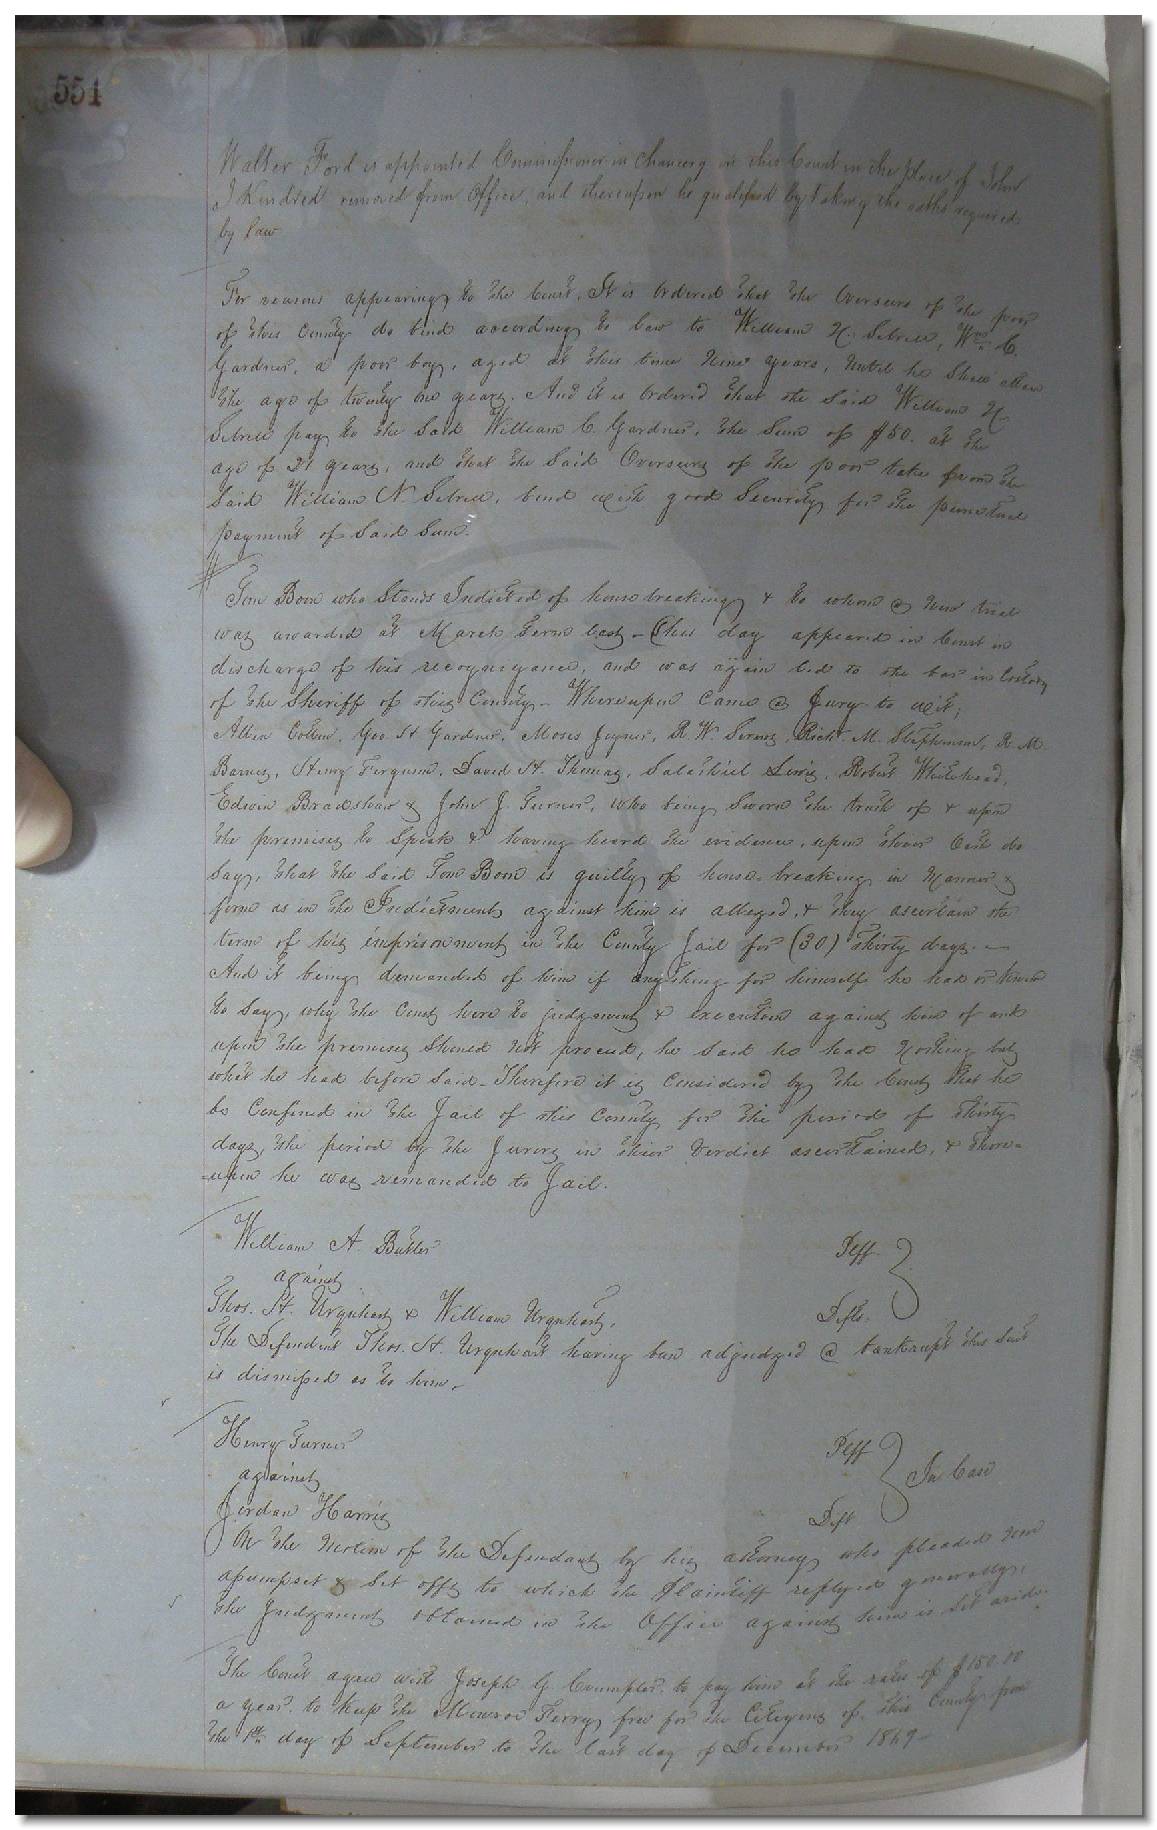 551
Walter Ford is appointed Commissioner in Chancery in this Court in the place of John
J Kindred removed from Office, and thereupon he qualified by taking the oaths required
by law
For reasons appearing to the Court, It is Ordered that the Overseers of the poor
of this County do bind according to law to William N. Sebrell, Wm C.
Gardner, a poor boy, aged at this time Nine years, Until he shall attain
the age of twenty one years. And it is Ordered that the Said William N.
Sebrell pay to the Said William C. Gardner, the Sum of $50. at the
age of 21 years, and that the Said Overseers of the poor take from the
Said William N. Sebrell, bond with good Security for the punctual
payment of Said Sum.
Tom Boon who Stands Indicted of house breaking & to whom a New trial
was awarded at March Term last - This day appeared in Court in
discharge of his recognizance, and was again led to the bar in Custody
of the Sheriff of this County - Whereupon Came a Jury to wit;
Collin, Geo. H Gardner, Moses Joyner, R. W. , Richd M. Stephenson, R. M.
Barnes, Henry Ferguson, David H. Thomas, Salathiel Lewis, Robert Whitehead,
Edwin Bradshaw & John J. Turner, who being Sworn the truth of & upon
the premises to Speak & having heard the evidence, upon their Oath do
Say, that the Said Tom Boon is guilty of house-breaking in Manner &
form as in the Indictment against him is alleged, & they ascertain the
term of his imprisonment in the County Jail for (30) Thirty days. -
And it being demanded of him if anything for himself he had or knew
to Say, why the Court here to judgment & execution against him of and
upon the premises Should not proceed, he Said he had Nothing but
what he had before Said - Therefore it is Considered by the Court that he
be Confined in the Jail of this County for the period of Thirty
days, the period by the Jurors in their Verdict ascertained, & there-
-upon he was remanded to Jail.
William A. Butler Plff
against
Thos. H. Urquhart & William Urquhart, Defts.
The Defendant Thos. H. Urquhart having been adjudged a bankrupt this Suit
is dismissed as to him.
Henry Turner Plff
against In Case
Jordan Harris Deft
On the Motion of the Defendant by his attorney who pleaded non
assumpsit & Set offs to which the Plaintiff replyed generally,
the Judgment obtained in the Office against him is Set aside.
The Court agree with Joseph G Crumpler, to pay him at the rate of $150.00
a year, to keep the Monroe Ferry free for the Citizens of this County from
the 1st day of September to the last day of December 1869 -